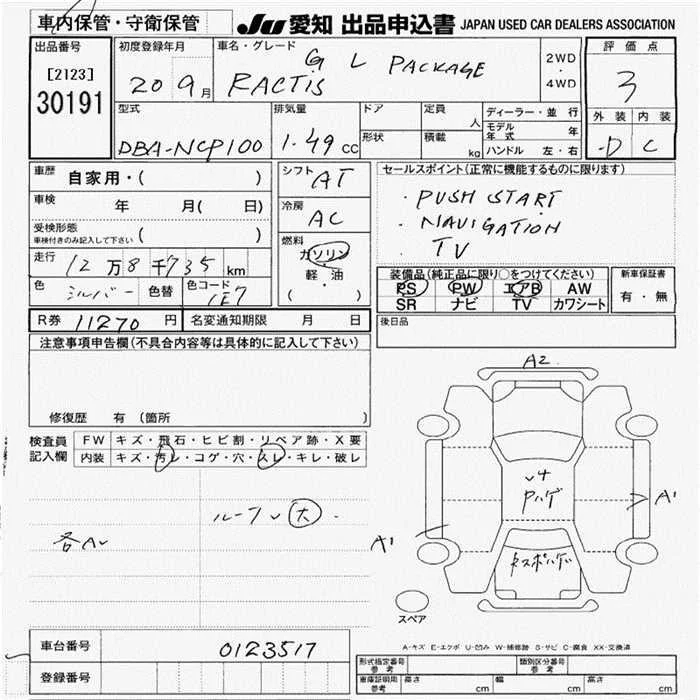 車内保管・守衛保管
JU 愛知 出品申込書 JAPAN USED CAR DEALERS ASSOCIATION
出品番号
[2123]
30191
初度登録年月
20 9月
車名・グレード
G L PACKAGE
RACTIS
2WD
・
4WD
評価点
3
外装 内装
D C
型式
DBA-NCP100
排気量
1.49 cc
ドア
形状
定員
人
積載
kg
ディーラー・並行
モデル
年式 年
ハンドル 左・右
車歴
自家用・( )
車検
年 月( 日)
受検形態
車検付きのみ記入して下さい ( )
走行
12万8千735 km
色
シルバー
色替
色コード
1E7
シフト
AT
冷房
AC
燃料
ガソリン
・
軽・油
( )
セールスポイント(正常に機能するものに限ります)
・PUSH START
・NAVIGATION
・TV
装備品(純正品に限り○をつけてください)
PS PW エアB AW
SR ナビ TV カワシート
新車保証書
有・無
後日品
R券 11270 円
名変通知期限 月 日
注意事項申告欄(不具合内容等は具体的に記入して下さい)
修復歴 有 (箇所 )
検査員
記入欄
FW キズ・飛石・ヒビ割・リペア跡・X要
内装 キズ・汚レ・コゲ・穴・スレ・キレ・破レ
ルーフ 大
各A
A2
A1
A1
スペア
A-キズ E-エクボ U-凹み W-補修跡 S-サビ C-腐食 XX-交換済
車台番号
0123517
登録番号
形式指定番号
参考
類別区分番号
参考
車庫証明用
参考
高さ cm
幅 cm
高さ cm